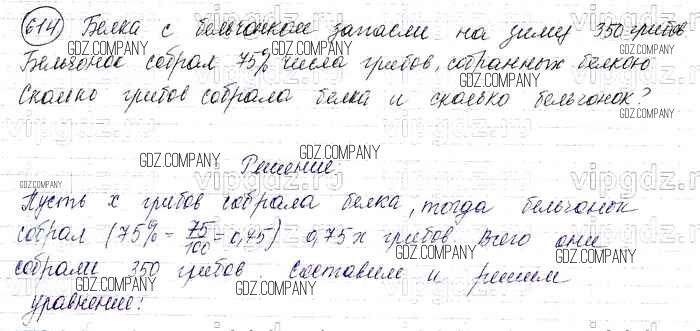 614 Белка с бельчонком запасли на зиму 350 грибов
Бельчонок собрал 75% числа грибов, собранных белкою
Сколько грибов собрала белка и сколько бельчонок?
Решение:
Пусть х грибов собрала белка, тогда бельчонок
собрал (75% = 75/100 = 0,75) 0,75х грибов Всего они
собрали 350 грибов. Составим и решим
уравнение:
GDZ.COMPANY
GDZ.COMPANY
GDZ.COMPANY
GDZ.COMPANY
GDZ.COMPANY
GDZ.COMPANY
GDZ.COMPANY
GDZ.COMPANY
GDZ.COMPANY
GDZ.COMPANY
GDZ.COMPANY
GDZ.COMPANY
GDZ.COMPANY
vipgdz.ru
vipgdz.ru
vipgdz.ru